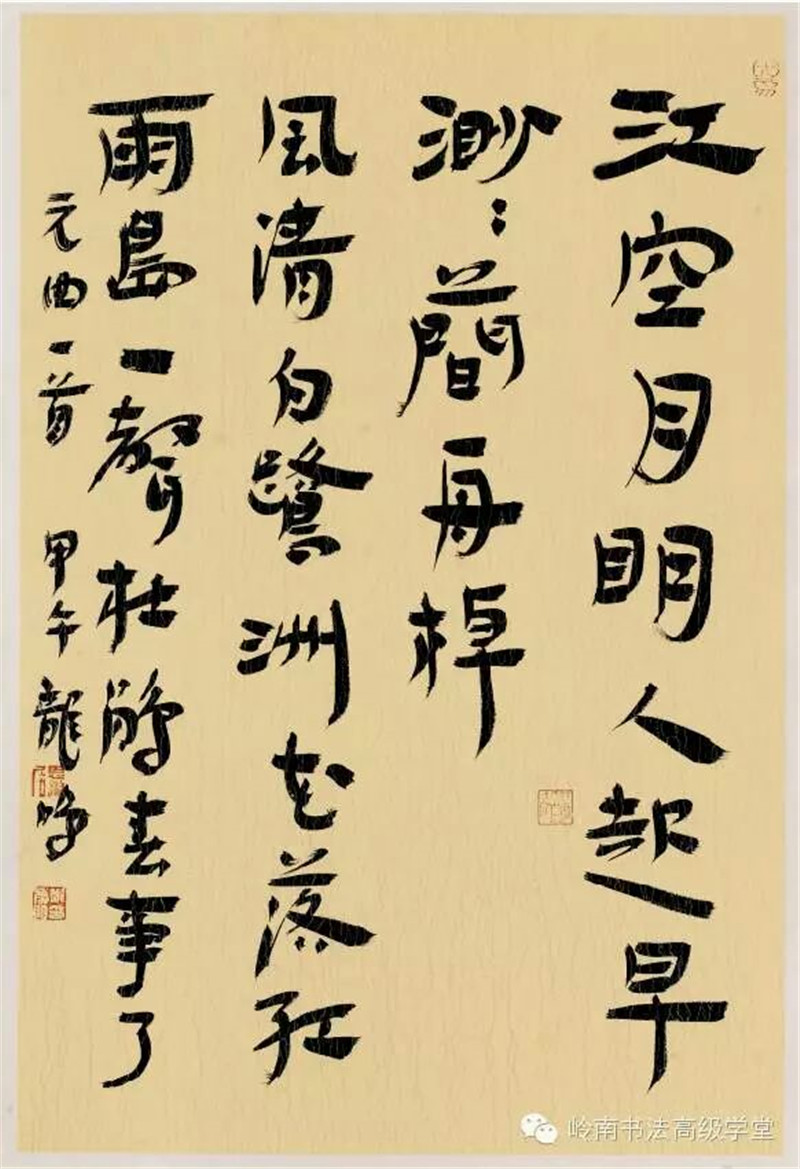 江空月明人起早
渺〻蘭舟棹
風清白鷺洲花落紅
雨島一聲杜鵑春事了
元曲一首 甲午 龍
岭南书法高级学堂